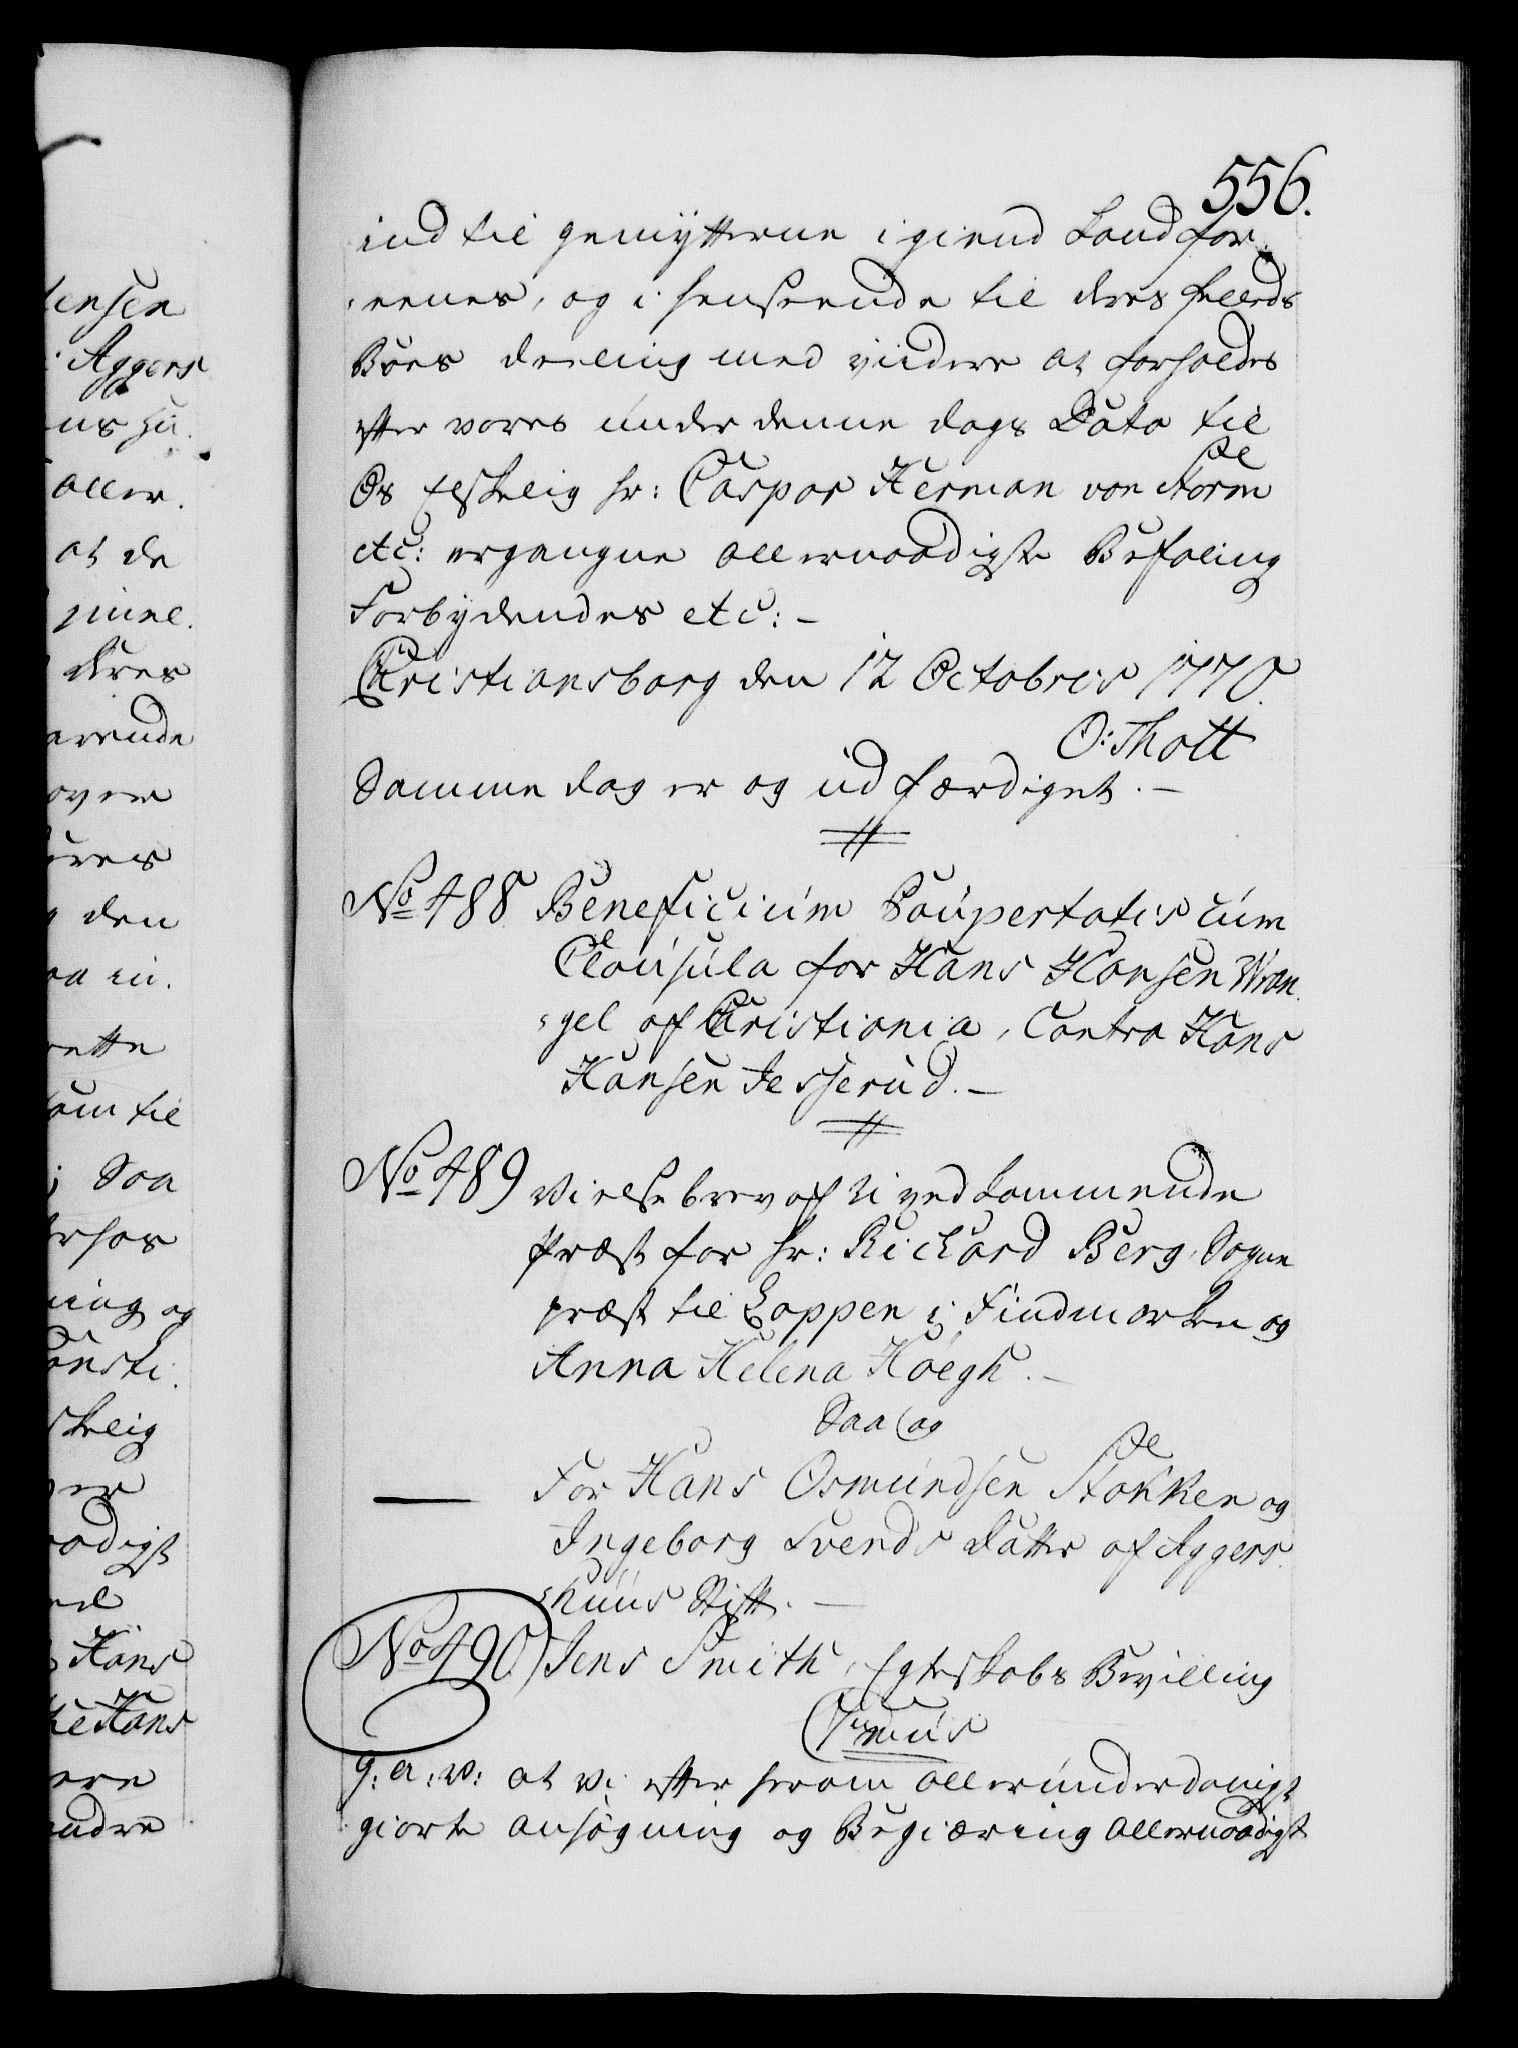 556.
ind til gemytterne igiend kand for¬
eenes, og i henseende til deres Fælleds
Boes deeling med videre at forholdes
efter vores under denne dags Dato til
Os Elskelig hr: Caspar Herman von Storm
etc: ergangne allernaadigste Befaling
Forbydendes etc: –
Christiansborg den 12 Octobris 1770.
O: Thott
Samme dag er og udfærdiget. –
No 488 Beneficium Paupertatis cum
Clausula for Hans Hansen Wran¬
gel af Christiania, Contra Hans
Hansen Jesserud. –
No 489 Vielsebrev af uvedkommende
Præst for hr: Richard Berg, Sogne
præst til Loppen i Findmarken og
Anna Helena Høegh. –
Saa og
For Hans Osmundsen Stokken og
Ingeborg Svends Datter af Aggers¬
huus Stift. –
No 490. Jens Smith, Egteskabs Bevilling
G: A: V: at Vi efter herom allerunderdanigst
giorte Ansøgning og Begiæring allernaadigst